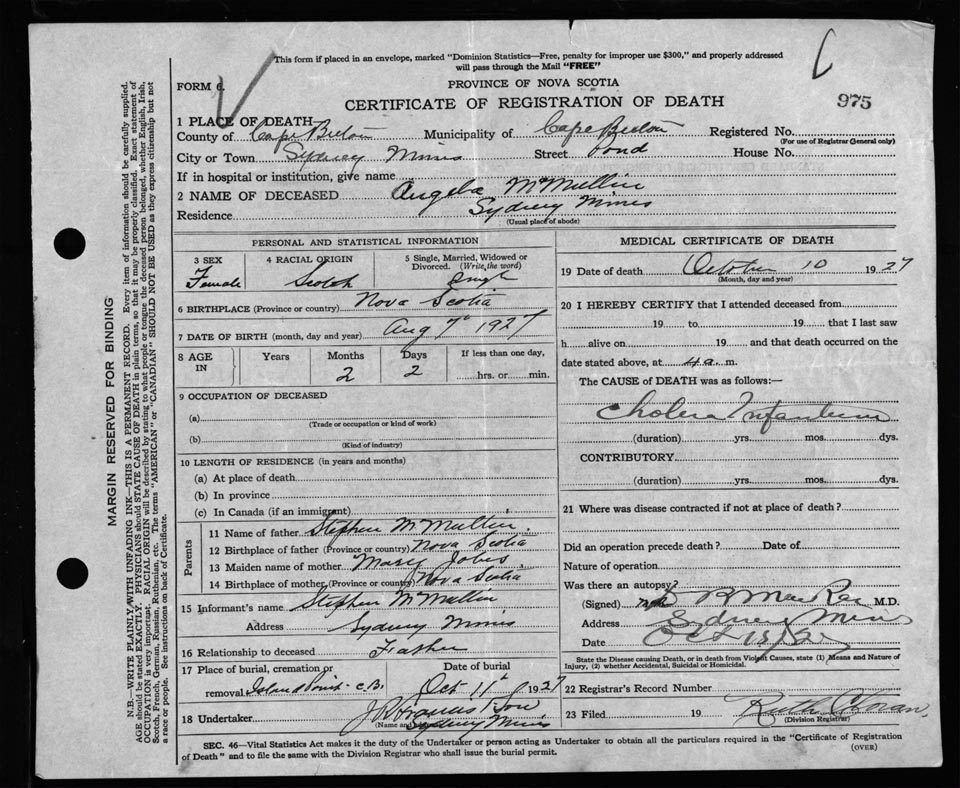 This form if placed in an envelope, marked "Dominion Statistics—Free, penalty for improper use $300," and properly addressed
will pass through the Mail "FREE"
FORM 6.
PROVINCE OF NOVA SCOTIA
CERTIFICATE OF REGISTRATION OF DEATH
975
1 PLACE OF DEATH
County of Cape Breton Municipality of Cape Breton Registered No.
(For use of Registrar General only)
City or Town Sydney Mines Street Pond House No.
If in hospital or institution, give name
2 NAME OF DECEASED Angela McMullin
Residence Sydney Mines
(Usual place of abode)
PERSONAL AND STATISTICAL INFORMATION
3 SEX 4 RACIAL ORIGIN 5 Single, Married, Widowed or Divorced. (Write the word)
Female Scotch Single
6 BIRTHPLACE (Province or country) Nova Scotia
7 DATE OF BIRTH (month, day and year) Aug 7 1927
8 AGE IN Years Months Days If less than one day,
2 2 hrs. or min.
9 OCCUPATION OF DECEASED
(a)
(Trade or occupation or kind of work)
(b)
(Kind of industry)
10 LENGTH OF RESIDENCE (in years and months)
(a) At place of death
(b) In province
(c) In Canada (if an immigrant)
Parents
11 Name of father Stephen McMullin
12 Birthplace of father (Province or country) Nova Scotia
13 Maiden name of mother Mary
14 Birthplace of mother (Province or country) Nova Scotia
15 Informant's name Stephen McMullin
Address Sydney Mines
16 Relationship to deceased Father
17 Place of burial, cremation or Date of burial
removal Island Point C.B. Oct 11 1927
18 Undertaker Son
(Name and Sydney Mines
MEDICAL CERTIFICATE OF DEATH
19 Date of death October 10 1927
(Month, day and year)
20 I HEREBY CERTIFY that I attended deceased from
19 to 19 that I last saw
h alive on 19 and that death occurred on the
date stated above, at 4 a. m.
The CAUSE of DEATH was as follows:—
Cholera Infantum
(duration) yrs. mos. dys.
CONTRIBUTORY
(duration) yrs. mos. dys.
21 Where was disease contracted if not at place of death?
Did an operation precede death? Date of
Nature of operation
Was there an autopsy?
(Signed) MacRae M.D.
Address Sydney Mines
Date Oct
State the Disease causing Death, or in death from Violent Causes, state (1) Means and Nature of
Injury, (2) whether Accidental, Suicidal or Homicidal.
22 Registrar's Record Number
23 Filed 19
(Division Registrar)
SEC. 46—Vital Statistics Act makes it the duty of the Undertaker or person acting as Undertaker to obtain all the particulars required in the "Certificate of Registration
of Death" and to file same with the Division Registrar who shall issue the burial permit.
(OVER)
MARGIN RESERVED FOR BINDING
N.B.—WRITE PLAINLY, WITH UNFADING INK—THIS IS A PERMANENT RECORD. Every item of information should be carefully supplied.
AGE should be stated EXACTLY. PHYSICIANS should STATE CAUSE OF DEATH in plain terms, so that it may be properly classified. Exact statement of
OCCUPATION is very important. RACIAL ORIGIN will be described by stating to what people or tongue the deceased person belonged, whether English, Irish,
Scotch, French, German, Russian, Ruthenian, etc. The terms "AMERICAN" or "CANADIAN" SHOULD NOT BE USED as they express citizenship but not
a race or people. See instructions on back of Certificate.